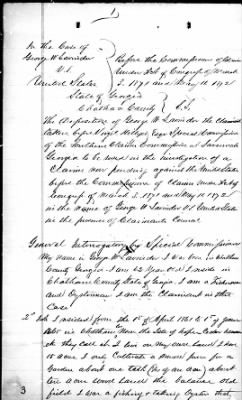 1
In the Case of
George W Lavender
V.S.
United States
Before the Commissioners of Claims
Under Act of Congress of March
3. 1871 and May 11 1872
State of Georgia
Chatham County } S.S.
The Deposition of George W Lavender the Claimant
taken before Special Commissioner
of the Southern Claims Commission at Savannah
Georgia to be used in the investigation of a
Claim now pending against the United States
before the Commissioners of Claims under Act of
Congress of March 3. 1871 and May 11 1872
in the name of George W Lavender vs United States
in the presence of Claimants Council
General Interrogatory by Special Commissioner
My name is George W Lavender I was born in
County Georgia I am years old I reside in
Chatham County State of Georgia I am a Fisherman
and Oysterman I am the Claimant in this
Case
2d I resided from the 1st of April 1861 to 1st of June
1865 in Chatham near the Isle of Hope
they call it. I live on my own land I have
15 acres I only cultivate a small piece for a
Garden about one
ten acres wood land the balance old
field I was a fishing & taking oysters that
3